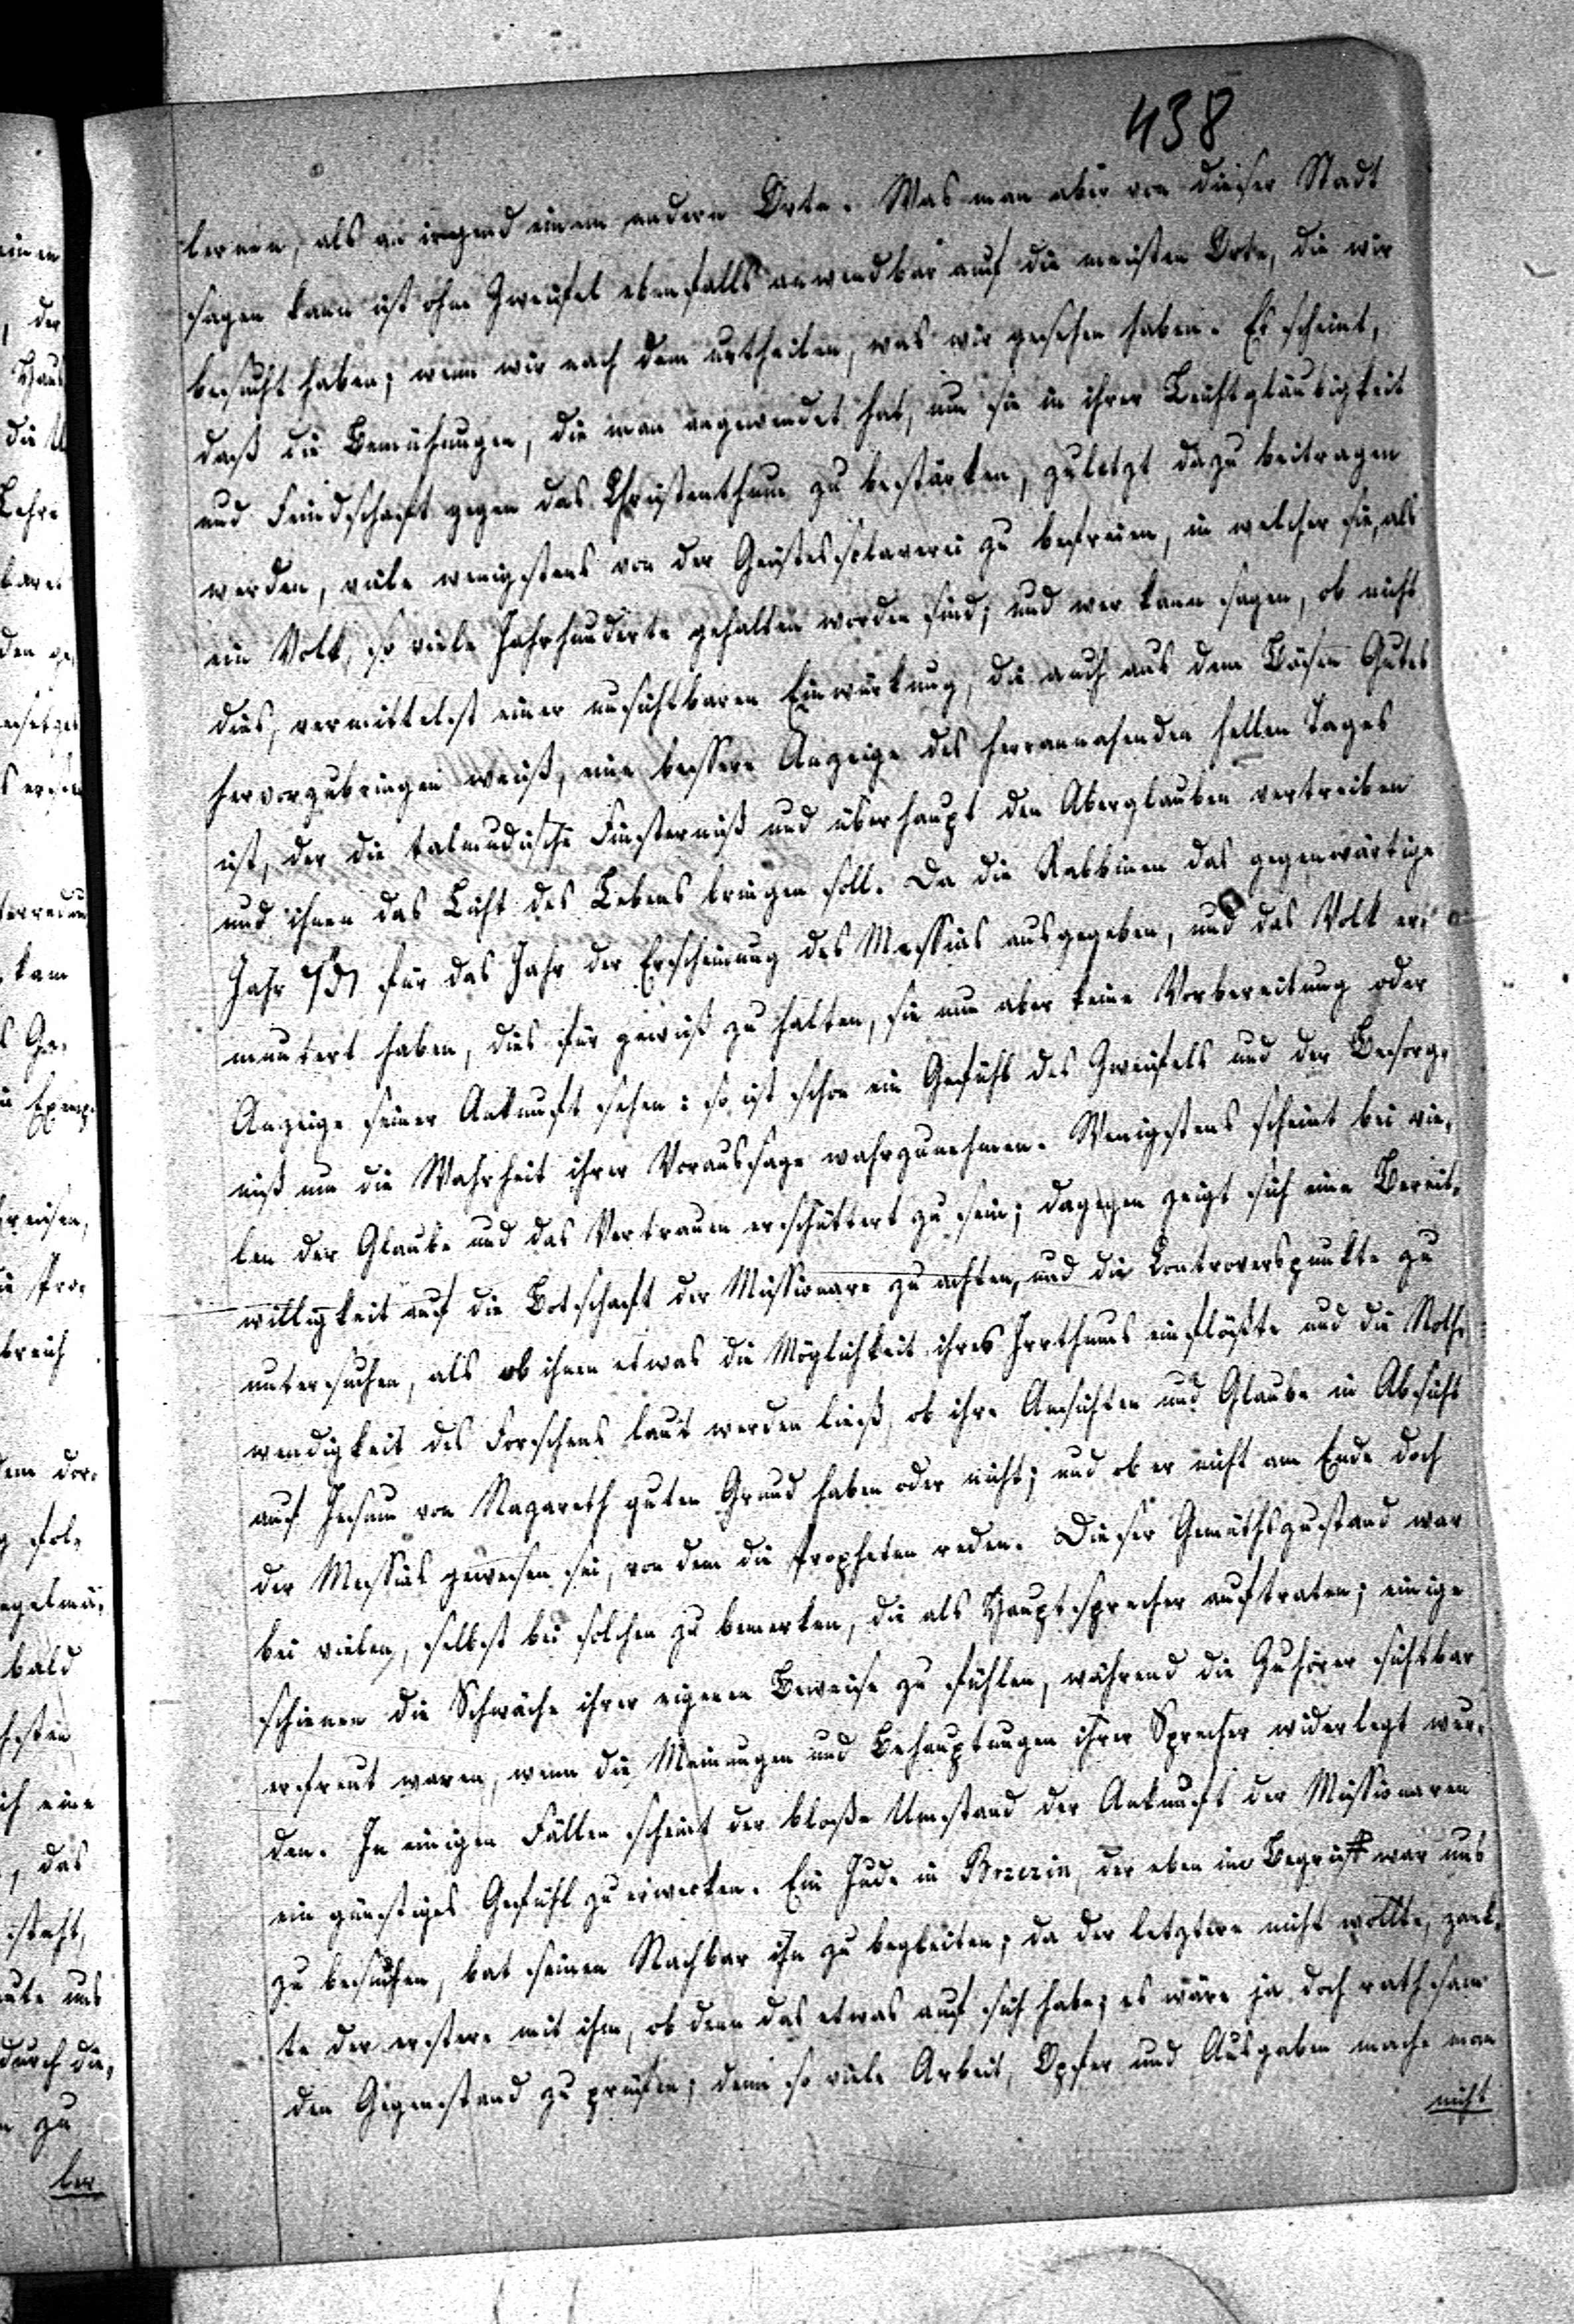 438
lernen, als an irgend einem andern Orte. Was man aber von dieser Stadt
sagen kann ist ohne Zweifel ebenfalls anwendbar auf die meisten Orte, die wir
besucht haben; wenn wir nach dem urtheilen, was wir gesehen haben. Es scheint,
daß die Bemühungen, die man angewendet hat, um sie in ihrer Leichtgläubigkeit
und Feindschaft gegen das Christenthum zu bestärken, zuletzt dazu beitragen
werden, viele wenigstens von der Geistessclaverei zu befreien, in welcher sie, als
ein Volk, so viele Jahrhunderte gehalten worden sind; und wer kann sagen, ob nicht
dies, vermittelst einer unsichtbaren Einwirkung, die auch aus dem Bösen Gutes
hervorzubringen weiß, eine bessere Anzeige des herrannahenden hellen Tages
ist, der die talmudische Finsterniß und überhaupt den Aberglauben vertreiben
und ihnen das Licht des Lebens bringen soll. Da die Rabbinen das gegenwärtige
Jahr für das Jahr der Erscheinung des Messias ausgegeben, und das Volk er-
muntert haben, dies für gewiß zu halten, sie nun aber keine Vorbereitung oder
Anzeige seiner Ankunft sehen: so ist schon ein Gefühl des Zweifels und der Besorg-
niß um die Wahrheit ihrer Voraussage wahrzunehmen. Wenigstens scheint bei vie-
len der Glaube und das Vertrauen erschüttert zu sein; dagegen zeigt sich eine Bereit-
willigkeit auf die Botschaft der Missionare zu achten, und die Controverspunkte zu
untersuchen, als ob ihnen etwas die Möglichkeit ihres Irrthums einflößte und die Noth-
wendigkeit des Forschens laut werden ließ, ob ihre Ansichten und Glaube in Absicht
auf Jesum von Nazareth guten Grund haben oder nicht; und ob er nicht am Ende doch
der Messias gewesen sei, von dem die Propheten reden. Dieser Gemüthszustand war
bei vielen, selbst bei solchen zu bemerken, die als Hauptsprecher auftraten; einige
schienen die Schwäche ihrer eigenen Beweise zu fühlen, während die Zuhörer sichtbar
erfreut waren, wenn die Meinungen und Behauptungen ihrer Sprecher widerlegt wur-
den. In einigen Fällen scheint der bloße Umstand der Ankunft der Missionaren
ein günstiges Gefühl zu erwecken. Ein Jude in Brzezin, der eben im Begriff war uns
zu besuchen, bat seinen Nachbar ihn zu begleiten; da der letztere nicht wollte, zank-
te der erstere mit ihm, ob denn das etwas auf sich habe; es wäre ja doch rathsam
den Gegenstand zu prüfen; denn so viele Arbeit, Opfer und Ausgaben mache man
nicht